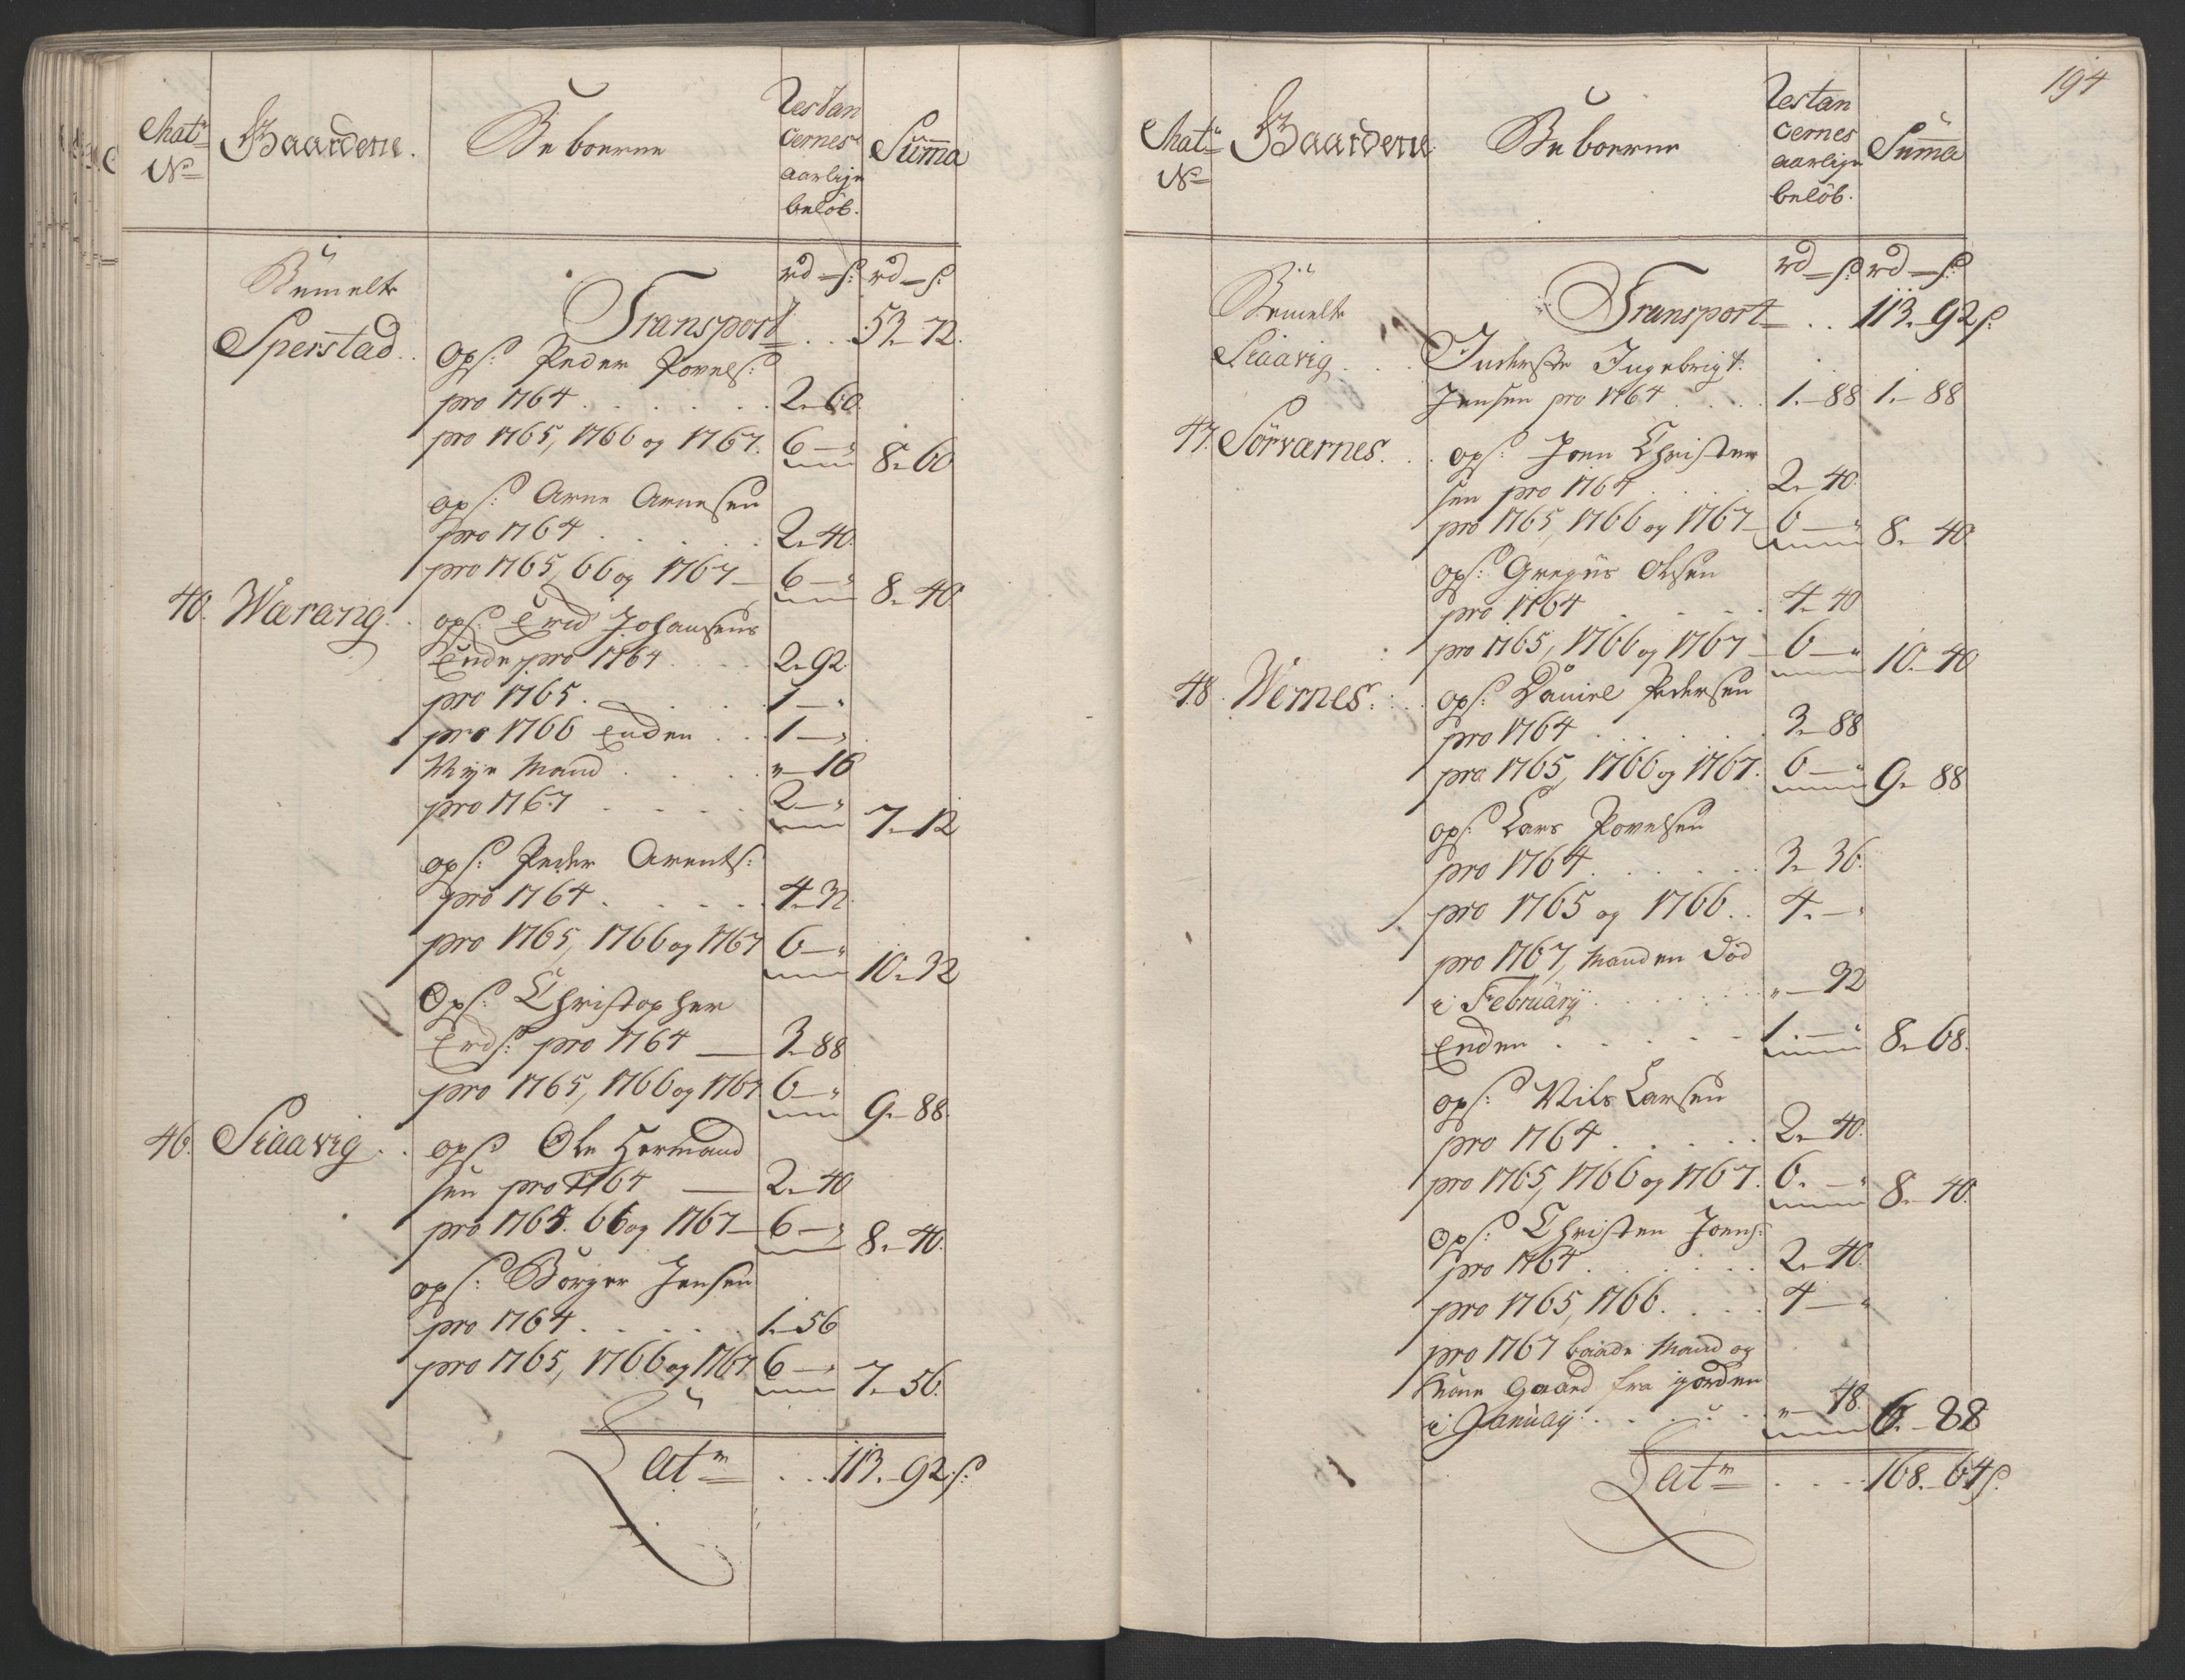 Matr
No
Gaardene.
Beboerne
Restan
cernes
aarlige
beløb.
Summa
rd – s: rd – s:
Bemelte
Transport . . 53 – 72.
Sperstad . .
Ops: Peder Povels:
pro 1764 . . . . . . 2 – 60.
pro 1765, 1766 og 1767. 6 – " 8 – 60
ops: Arne Arnesen
pro 1764 . . . . . 2 – 40.
pro 1765, 66 og 1767 – 6 – " 8 – 40.
40. Wærang . .
ops: Erid Johansens
Enke pro 1764 . . . . 2 – 92.
pro 1765 . . . . . 1 – "
pro 1766 Enden . . . 1 – "
Nÿe Mand . . . . " – 16
pro 1767 . . . . 2 – " 7 – 12
ops: Peder Arents:
pro 1764 . . . . . 4 – 32.
pro 1765, 1766 og 1767 6 – " 10 – 32
Ops: Christopher
Erds: pro 1764 — 3 – 88
pro 1765, 1766 og 1767 6 – " 9 – 88.
46. Siaavig . .
ops: Ole Hermand
sen pro 1764 — 2 – 40
pro 1765. 66 og 1767 – 6 – " 8 – 40.
ops: Børger Jensen
pro 1764 . . . . . 1 – 56
pro 1765, 1766 og 1767 6 – " 7 – 56.
Latr . . . 113. – 92 s:
194
Matr
No
Gaardene
Beboerne
Restan
cernes
aarlige
beløb.
Summa
rd – s: rd – s:
Bemelte
Transport . . 113. – 92 s:
Siaavig . . .
Inderste Ingebrigt
Jensen pro 1764 . . . . 1. – 88 1. – 88
47. Sörværnes. . .
ops: Joen Christen
sen pro 1764 . . . . 2 – 40.
pro 1765, 1766 og 1767 – 6 – " 8 – 40.
ops: Gregus Olsen
pro 1764 . . . . . 4 – 40
pro 1765, 1766 og 1767 – 6 – " 10. – 40
48. Wernes . . .
ops: Daniel Pedersen
pro 1764 . . . . . 3 – 88
pro 1765, 1766 og 1767. 6 – " 9 – 88
ops: Lars Povelsen
pro 1764 . . . . . . 3 – 36.
pro 1765 og 1766 . . 4. – "
pro 1767, Manden död
i Februarÿ . . . . . . " – 32
Enden . . . . . 1. – " 8 – 68.
ops: Nils Larsen
pro 1764 . . . . . 2 – 40.
pro 1765, 1766 og 1767. 6. – " 8 – 40.
Ops: Christen Joens:
pro 1764 . . . . . . 2 – 40.
pro 1765, 1766 . . . . 4 – "
pro 1767 baade Mand og
Kone Gaaed fra jorden
i Januaÿ . . . . . " – 48. 6. – 88
Latr . . . . 168. – 64 s.